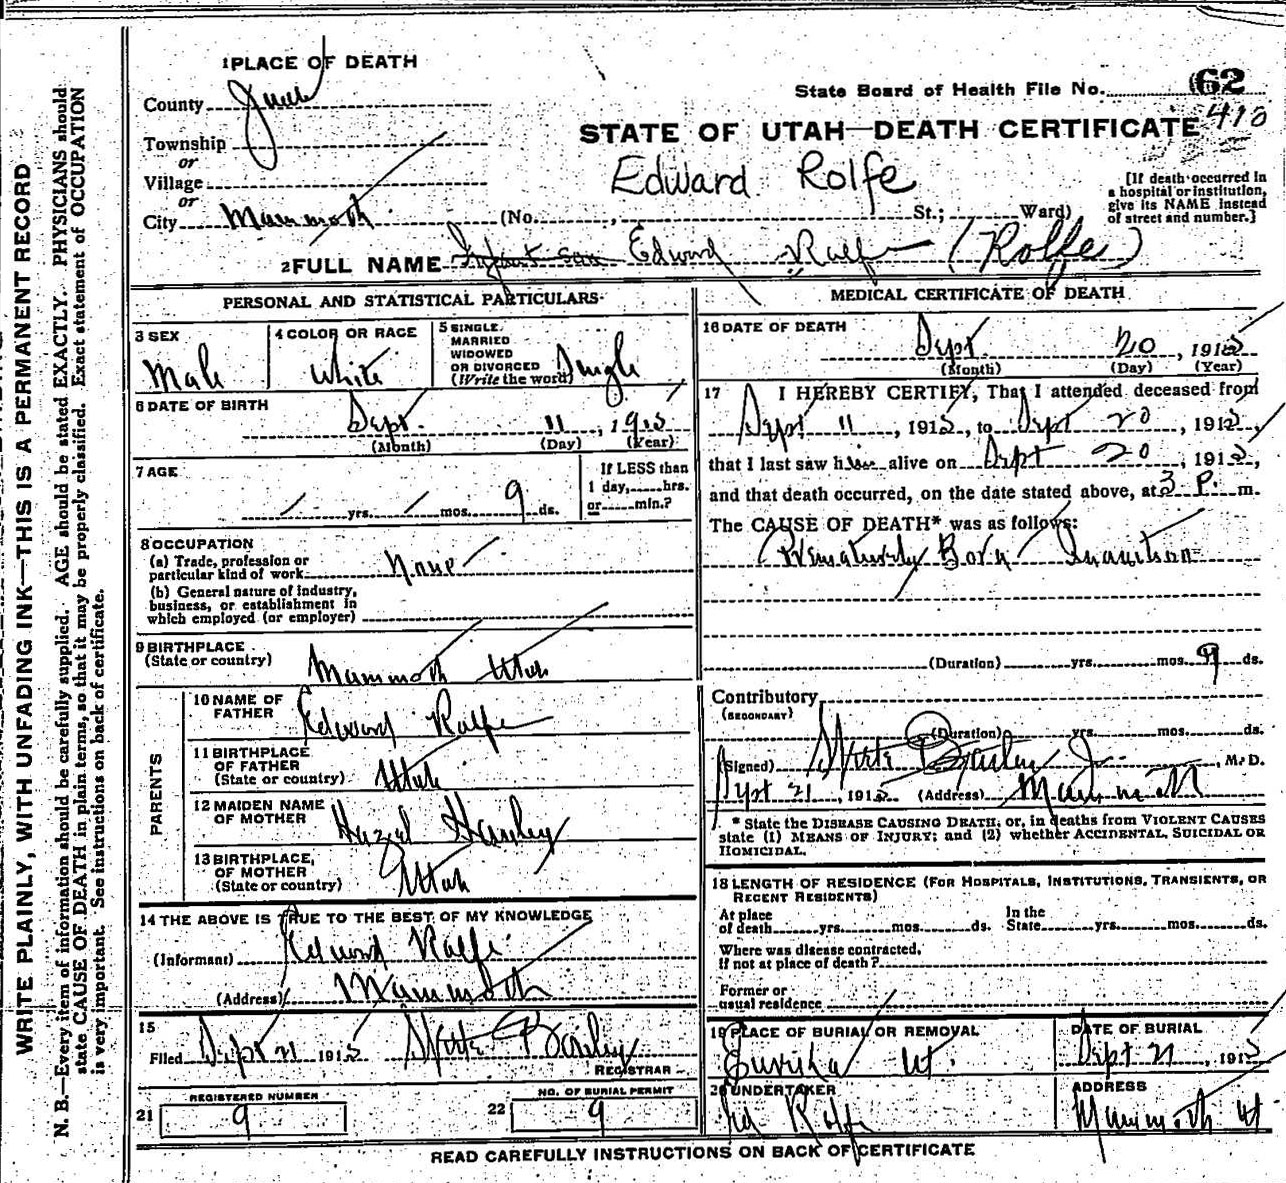 WRITE PLAINLY, WITH UNFADING INK—THIS IS A PERMANENT RECORD
N. B.—Every item of information should be carefully supplied. AGE should be stated EXACTLY. PHYSICIANS should
state CAUSE OF DEATH in plain terms, so that it may be properly classified. Exact statement of OCCUPATION
is very important. See instructions on back of certificate.
1 PLACE OF DEATH
County Juab
Township
or
Village
or
City Mammoth (No. , St.; Ward)
State Board of Health File No. 62
410
STATE OF UTAH—DEATH CERTIFICATE
Edward Rolfe
[If death occurred in
a hospital or institution,
give its NAME instead
of street and number.]
2 FULL NAME Infant son Edward Ralf (Rolfe)
PERSONAL AND STATISTICAL PARTICULARS
3 SEX
Male
4 COLOR OR RACE
White
5 SINGLE,
MARRIED
WIDOWED
OR DIVORCED
(Write the word) Single
6 DATE OF BIRTH
Sept. 11, 191
(Month) (Day) (Year)
7 AGE
/ yrs. / mos. 9 ds.
If LESS than
1 day, hrs.
or min.?
8 OCCUPATION
(a) Trade, profession or
particular kind of work None
(b) General nature of industry,
business, or establishment in
which employed (or employer)
9 BIRTHPLACE
(State or country)
Mammoth Utah
PARENTS
10 NAME OF
FATHER
Edward Rolfe
11 BIRTHPLACE
OF FATHER
(State or country) Utah
12 MAIDEN NAME
OF MOTHER
Hazel
13 BIRTHPLACE,
OF MOTHER
(State or country) Utah
14 THE ABOVE IS TRUE TO THE BEST OF MY KNOWLEDGE
(Informant) Edward Rolfe
(Address) Mammoth
15
Filed Sept 21 191 Bailey
REGISTRAR
21
REGISTERED NUMBER
9
22
NO. OF BURIAL PERMIT
9
MEDICAL CERTIFICATE OF DEATH
16 DATE OF DEATH
Sept. 20, 191
(Month) (Day) (Year)
17 I HEREBY CERTIFY, That I attended deceased from
Sept 11, 191, to Sept 20, 191,
that I last saw him alive on Sept 20, 191,
and that death occurred, on the date stated above, at 3 P. m.
The CAUSE OF DEATH* was as follows:
Prematurely Born Inanition
(Duration) yrs. mos. 9 ds.
Contributory
(SECONDARY)
(Duration) yrs. mos. ds.
(Signed) Bailey Jr. , M. D.
Sept 21, 191 (Address) Mammoth
* State the DISEASE CAUSING DEATH, or, in deaths from VIOLENT CAUSES
state (1) MEANS OF INJURY; and (2) whether ACCIDENTAL, SUICIDAL OR
HOMICIDAL.
18 LENGTH OF RESIDENCE (FOR HOSPITALS, INSTITUTIONS, TRANSIENTS, OR
RECENT RESIDENTS)
At place
of death yrs. mos. ds.
In the
State yrs. mos. ds.
Where was disease contracted,
if not at place of death?
Former or
usual residence
19 PLACE OF BURIAL OR REMOVAL
Eureka Ut.
DATE OF BURIAL
Sept 21, 191
20 UNDERTAKER
Ed Rolfe
ADDRESS
Mammoth Ut
READ CAREFULLY INSTRUCTIONS ON BACK OF CERTIFICATE